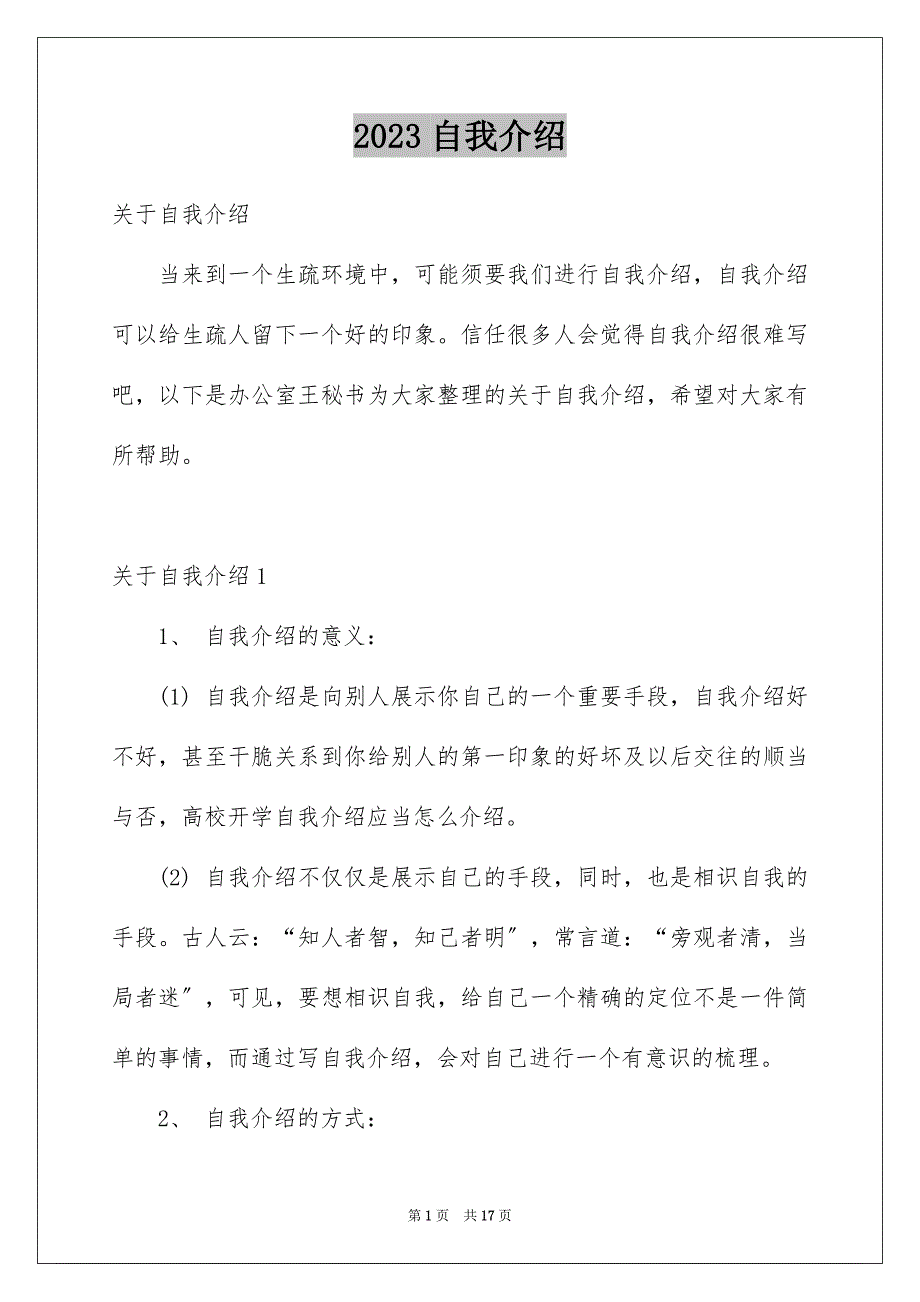 2023自我介绍
关于自我介绍
当来到一个生疏环境中，可能须要我们进行自我介绍，自我介绍
可以给生疏人留下一个好的印象。信任很多人会觉得自我介绍很难写
吧，以下是办公室王秘书为大家整理的关于自我介绍，希望对大家有
所帮助。
关于自我介绍1
1、 自我介绍的意义：
(1) 自我介绍是向别人展示你自己的一个重要手段，自我介绍好
不好，甚至干脆关系到你给别人的第一印象的好坏及以后交往的顺当
与否，高校开学自我介绍应当怎么介绍。
(2) 自我介绍不仅仅是展示自己的手段，同时，也是相识自我的
手段。古人云：“知人者智，知己者明〞，常言道：“旁观者清，当
局者迷〞，可见，要想相识自我，给自己一个精确的定位不是一件简
单的事情，而通过写自我介绍，会对自己进行一个有意识的梳理。
2、 自我介绍的方式：
第1页 共17页